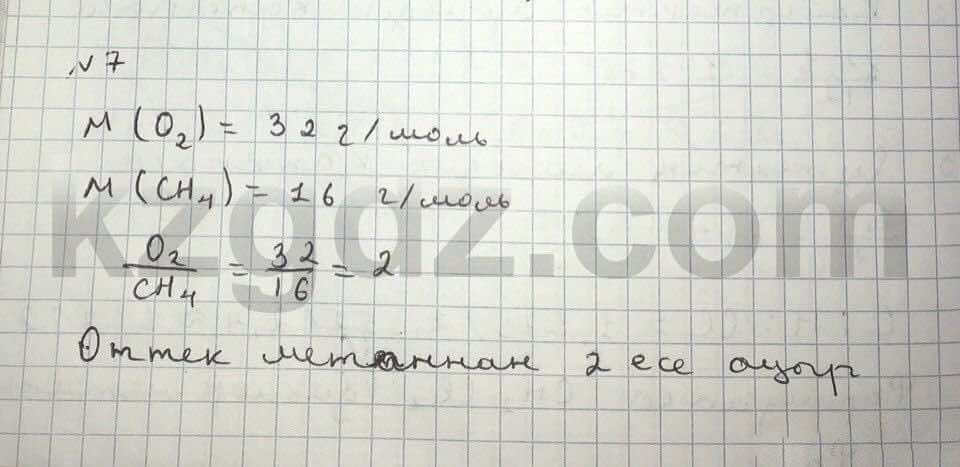 №7
M (O₂) = 32 г/моль
M (CH₄) = 16 г/моль
O₂/CH₄ = 32/16 = 2
Оттек метаннан 2 есе ауыр
kzgdz.com